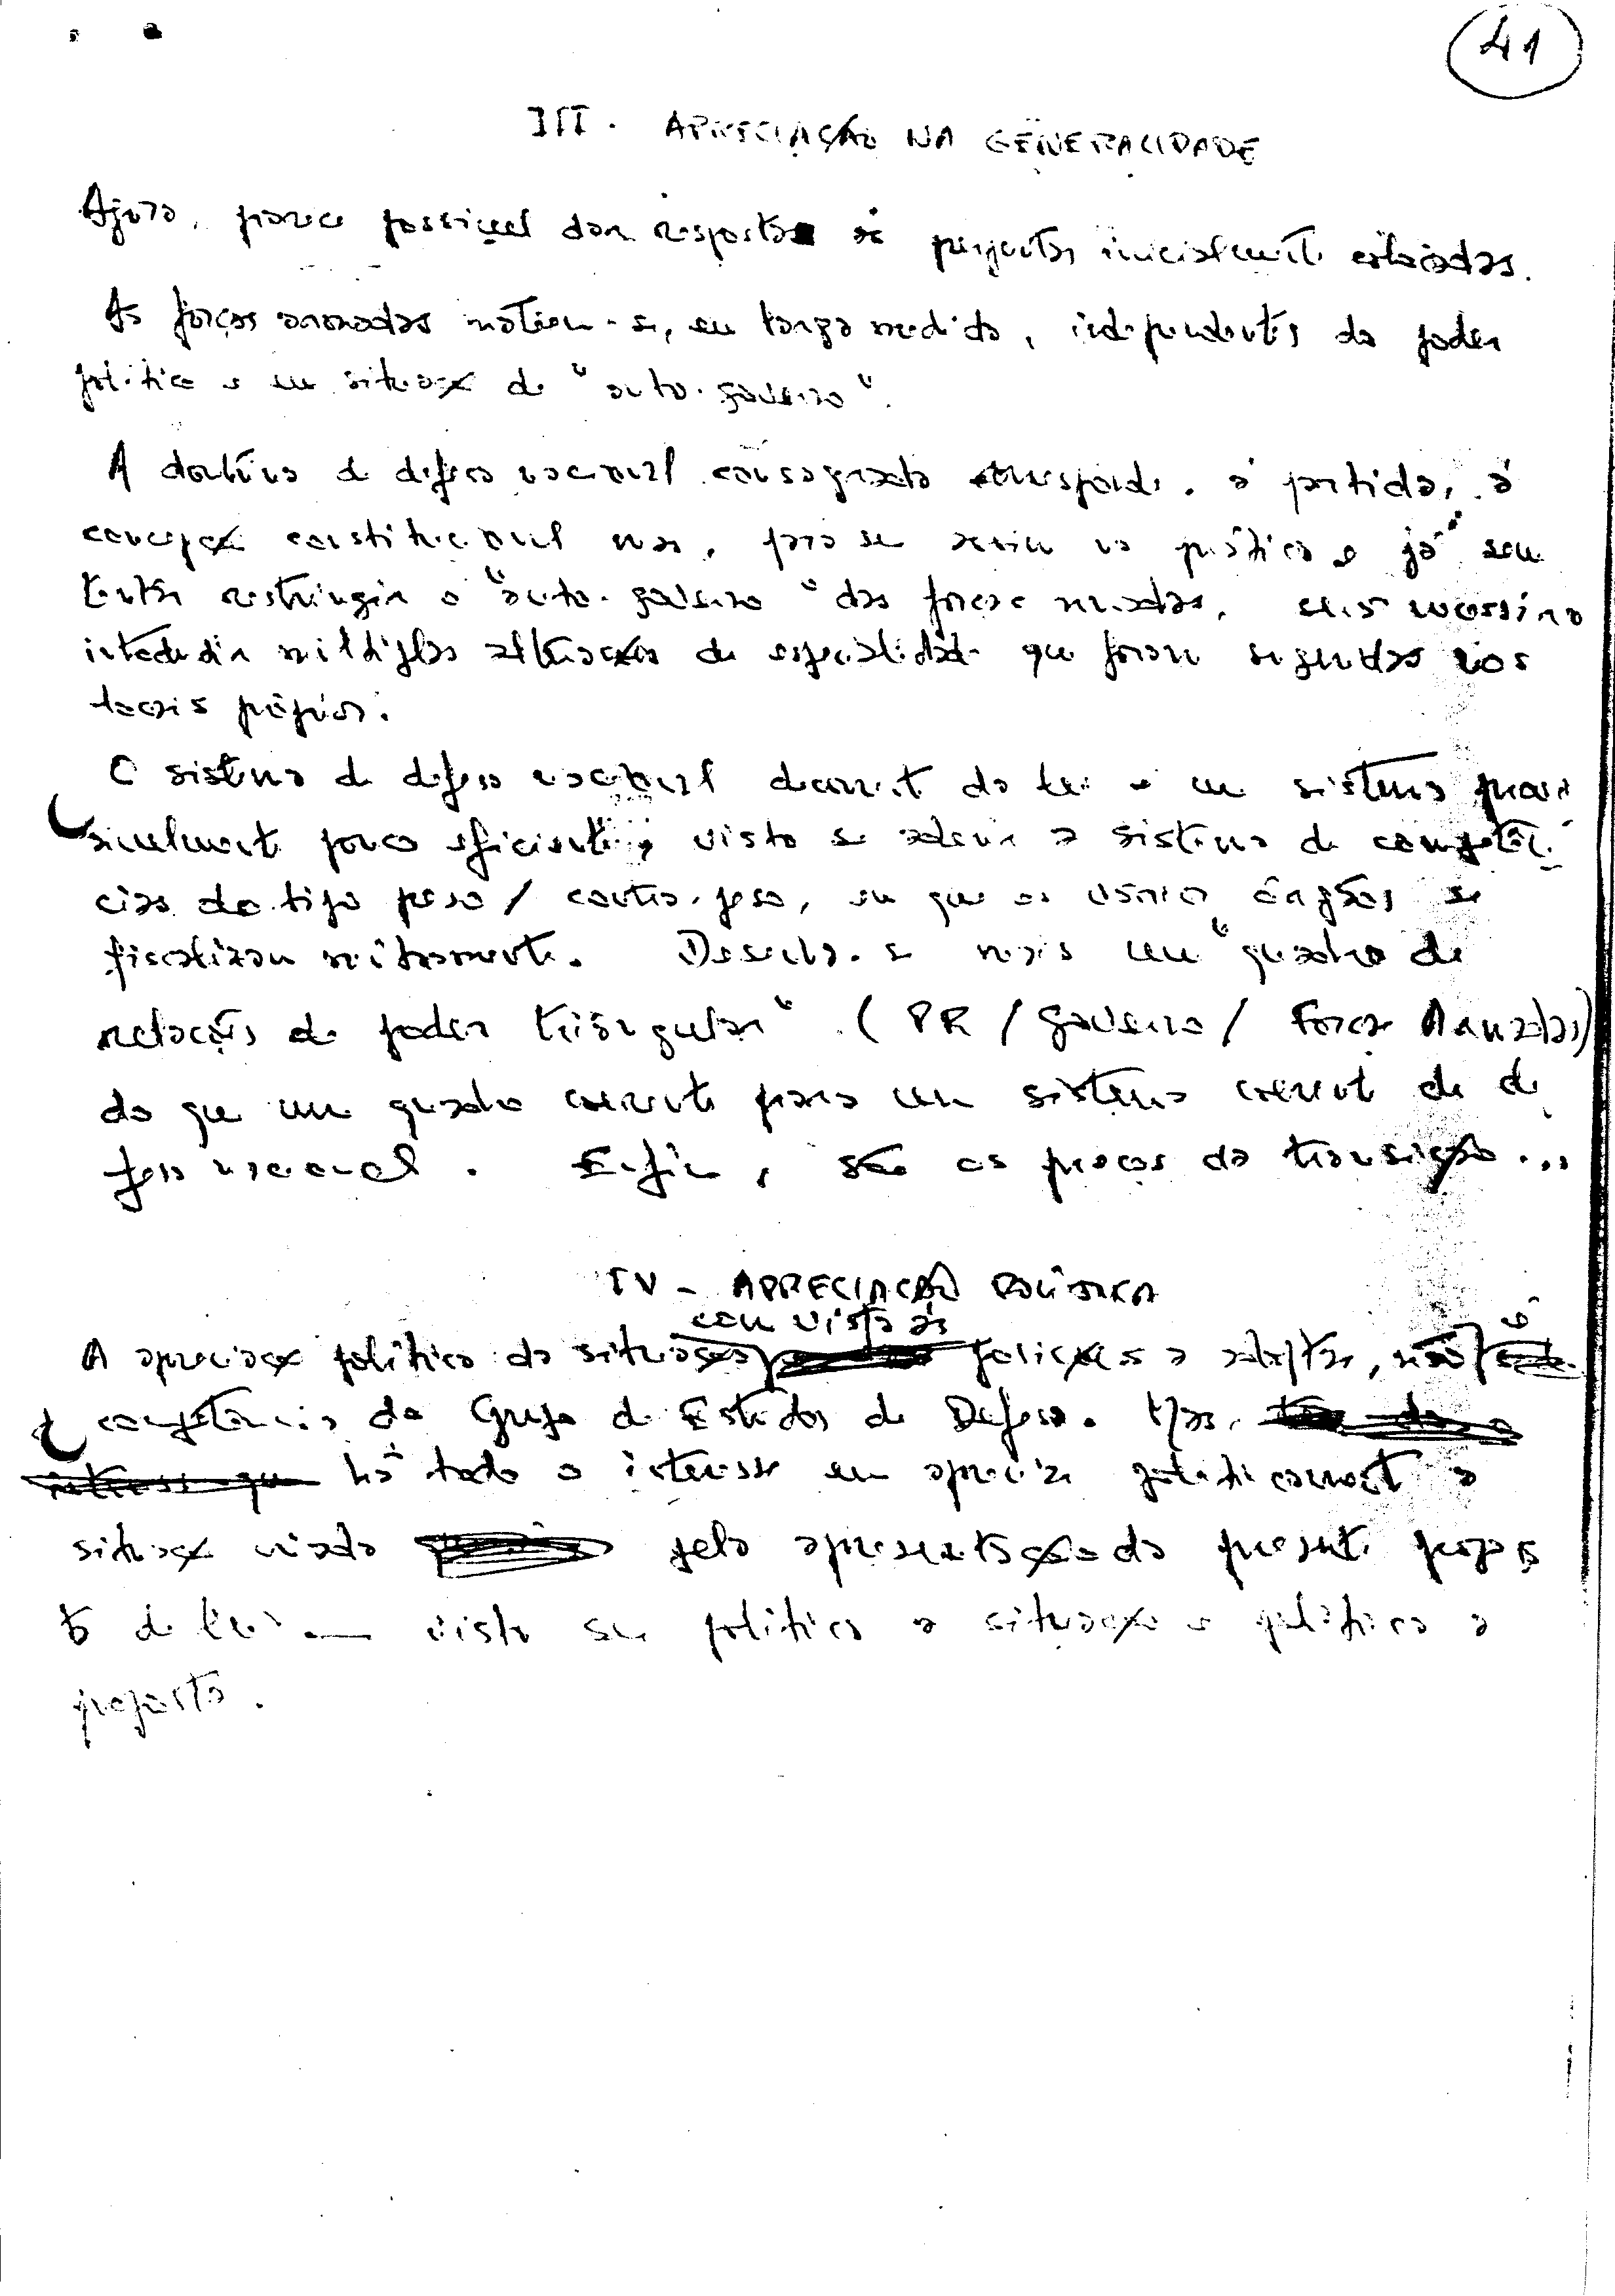 41
III. APRECIAÇÃO NA GENERALIDADE
Agora, parece possível dar resposta às perguntas inicialmente esboçadas.
As forças armadas mantêm-se, em larga medida, independentes do poder
político e em situação de "auto-governo".
A doutrina de defesa nacional consagrada corresponde, à partida, à
concepção constitucional mas, para se aceitar na prática e já sem
tentar restringir o "auto-governo" das forças armadas, seria necessário
introduzir múltiplas alterações de especialidade que foram sugeridas nos
locais próprios.
O sistema de defesa nacional decorrente da lei é um sistema prova
velmente pouco eficiente, visto se aderir a sistema de competên-
cias do tipo peso / contra-peso, em que os vários órgãos se
fiscalizam mutuamente. Desenha-se mais um "quadro de
relações de poder triangular" (PR / Governo / Forças Armadas)
do que um quadro coerente para um sistema coerente de de
fesa nacional. Enfim, são os preços da transição...
IV - APRECIAÇÃO POLÍTICA
com vista às
A apreciação política da situação posições a adoptar, não é
da competência do Grupo de Estudos de Defesa. Mas,
há todo o interesse em apreciar politicamente a
situação criada pela apresentação da presente propos
ta de lei — visto ser política a situação e política a
proposta.